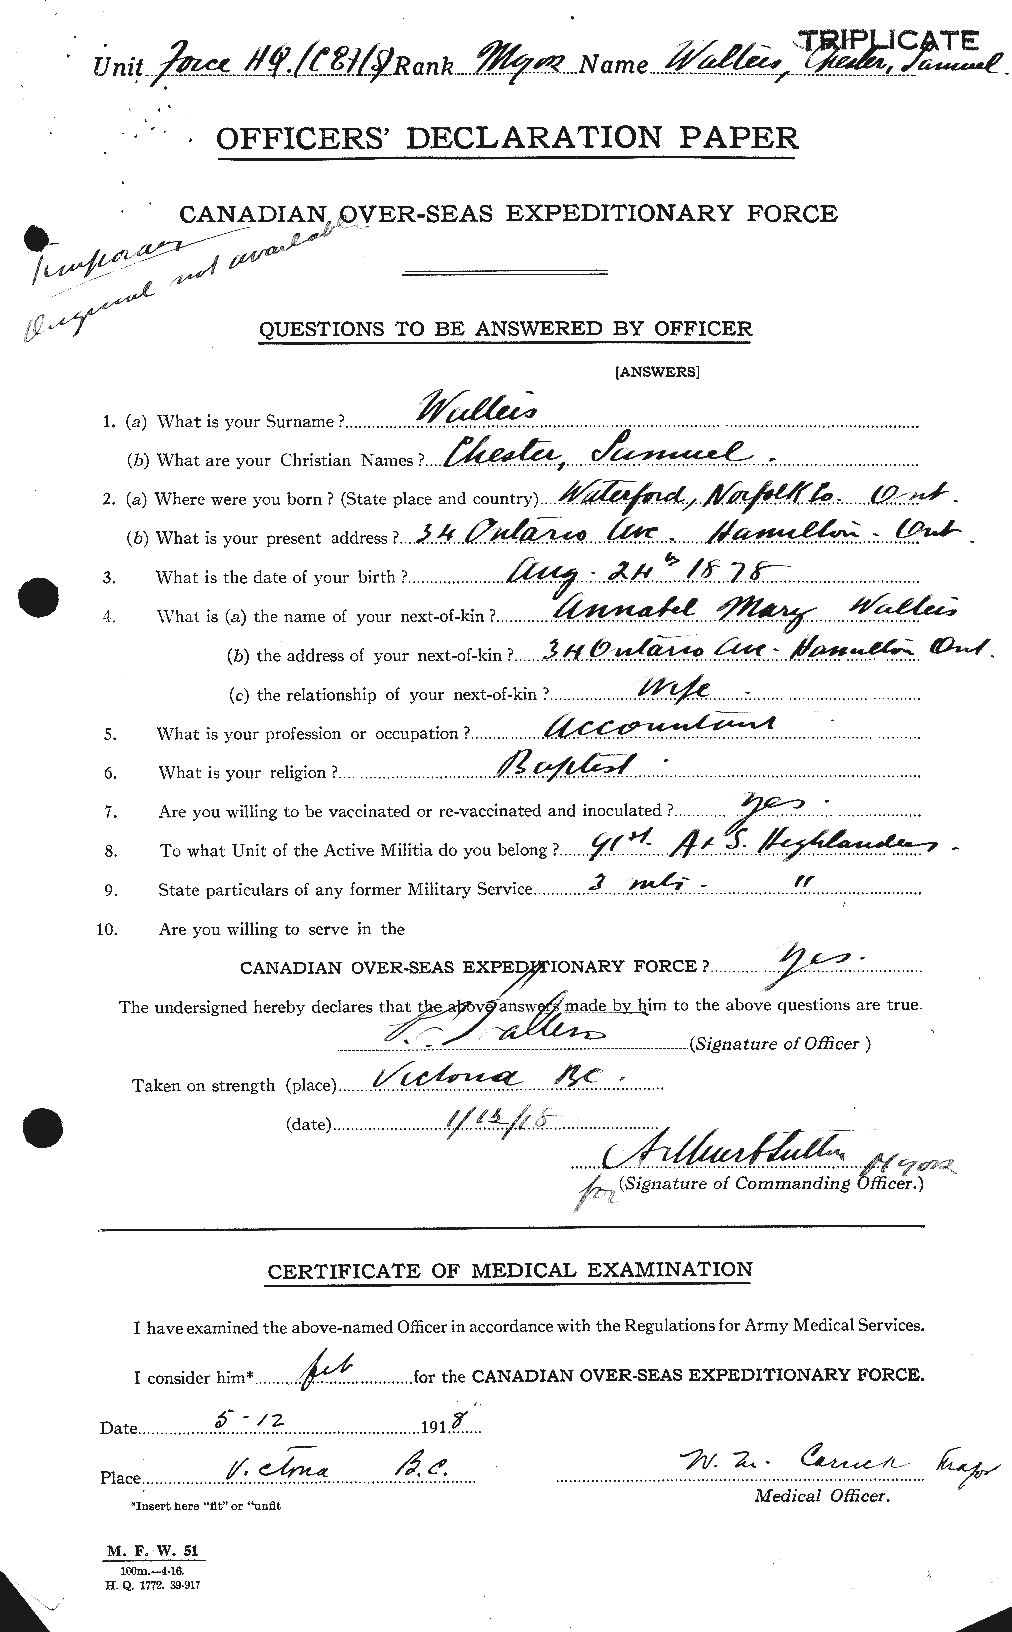 TRIPLICATE
Unit Force HQ. (CEF(S) Rank Major Name Walters, Chester, Samuel.
OFFICERS' DECLARATION PAPER
CANADIAN OVER-SEAS EXPEDITIONARY FORCE
Temporary
Original not available
QUESTIONS TO BE ANSWERED BY OFFICER
[ANSWERS]
1. (a) What is your Surname? Walters
(b) What are your Christian Names? Chester, Samuel.
2. (a) Where were you born? (State place and country) Waterford, Norfolk Co. Ont.
(b) What is your present address? 34 Ontario Ave. Hamilton. Ont.
3. What is the date of your birth? Aug. 24th 1878
4. What is (a) the name of your next-of-kin? Annabel Mary Walters
(b) the address of your next-of-kin? 34 Ontario Ave. Hamilton Ont.
(c) the relationship of your next-of-kin? Wife
5. What is your profession or occupation? Accountant
6. What is your religion? Baptist
7. Are you willing to be vaccinated or re-vaccinated and inoculated? Yes.
8. To what Unit of the Active Militia do you belong? 91st. A & S. Highlanders.
9. State particulars of any former Military Service 3 mts. "
10. Are you willing to serve in the
CANADIAN OVER-SEAS EXPEDITIONARY FORCE? Yes.
The undersigned hereby declares that the above answers made by him to the above questions are true.
Walters (Signature of Officer)
Taken on strength (place) Victoria BC.
(date) 1/12/18
Major
for (Signature of Commanding Officer.)
CERTIFICATE OF MEDICAL EXAMINATION
I have examined the above-named Officer in accordance with the Regulations for Army Medical Services.
I consider him* fit for the CANADIAN OVER-SEAS EXPEDITIONARY FORCE.
Date 5-12 1918
Place Victoria B.C. Major
*Insert here "fit" or "unfit Medical Officer.
M. F. W. 51
100m.—4-16.
H. Q. 1772. 39-917